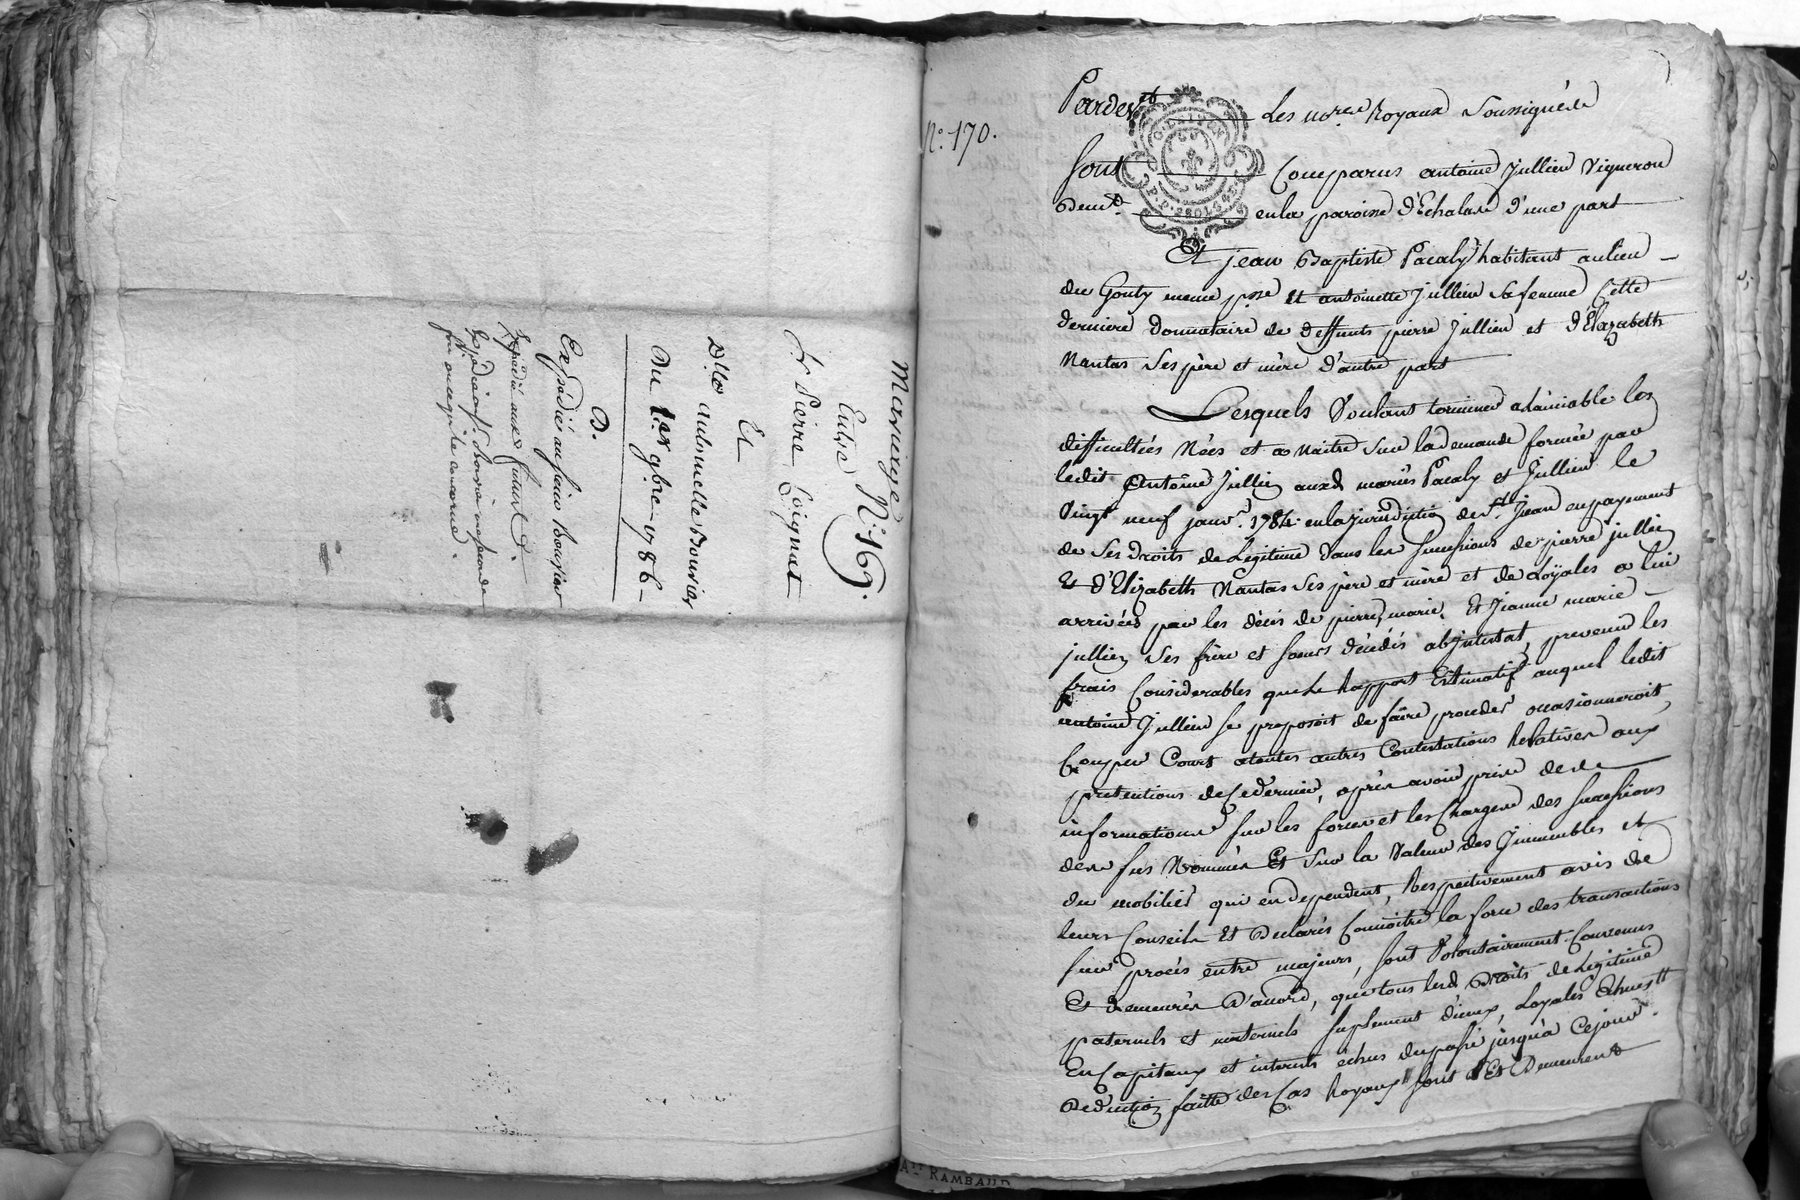 Mariage N.° 169.
Entre
Sr Pierre Coignet
Et
Dlle antoinette Bouvier
Du 1er 9bre 1786
D.
Expédié au sieur Bouvier
Expédié aux
N.° 170.
Pardevt Les nores Royaux Soussignés
G. DE LYON
Sont Comparus antoine Jullien Vigneron
demt en la paroisse d'Echalas d'une part
Et jean Baptiste Pacaly habitant au lieu
du Gouty meme psse et antoinette Jullien Sa femme Cette
derniere donnataire de deffunts pierre Jullien et d'Elizabeth
Nantas Ses père et mère d'autre part
Lesquels Voulant terminer a l'amiable les
difficultés Nées et a Naitre Sur la demande formée par
ledit Antoine Jullien auxd. mariés Pacaly et Jullien le
Vingt neuf janvr. 1784 en la jurisdiction de St. Jean en payement
de Ses droits de Legitime dans les Successions de pierre jullien
Et d'Elizabeth Nantas Ses père et mère et de Loÿales a lui
arrivées par les décès de pierre, marie, Et Jeanne marie
jullien Ses frère et soeurs décédés abjntestat, prevenir les
frais Considerables que Le Rapport Estimatif auquel ledit
antoine Jullien se proposoit de faire proceder occasionneroit,
Couper Court a toutes autres Contestations Relatives aux
pretentions de Ce dernier, après avoir pris de
informations sur les forces et les Charges des successions
des sus Nommés Et Sur la Valeur des Jmmeubles et
du mobilier qui en dependent, Respectivement avis de
leurs Conseils Et Declarés Connoitre la force des transactions
sur procès entre majeurs, sont Volontairement Convenus
Et demeurés D'accord, que tous lesd. Droits de Legitime
paternels et maternels suplement d'iceux, Loyales Echues
En Capitaux et interets echus du passé jusqu'à Ce jour.
Deduction faitte des Cas Royaux sont Et Demeurent
ATT RAMBAUD